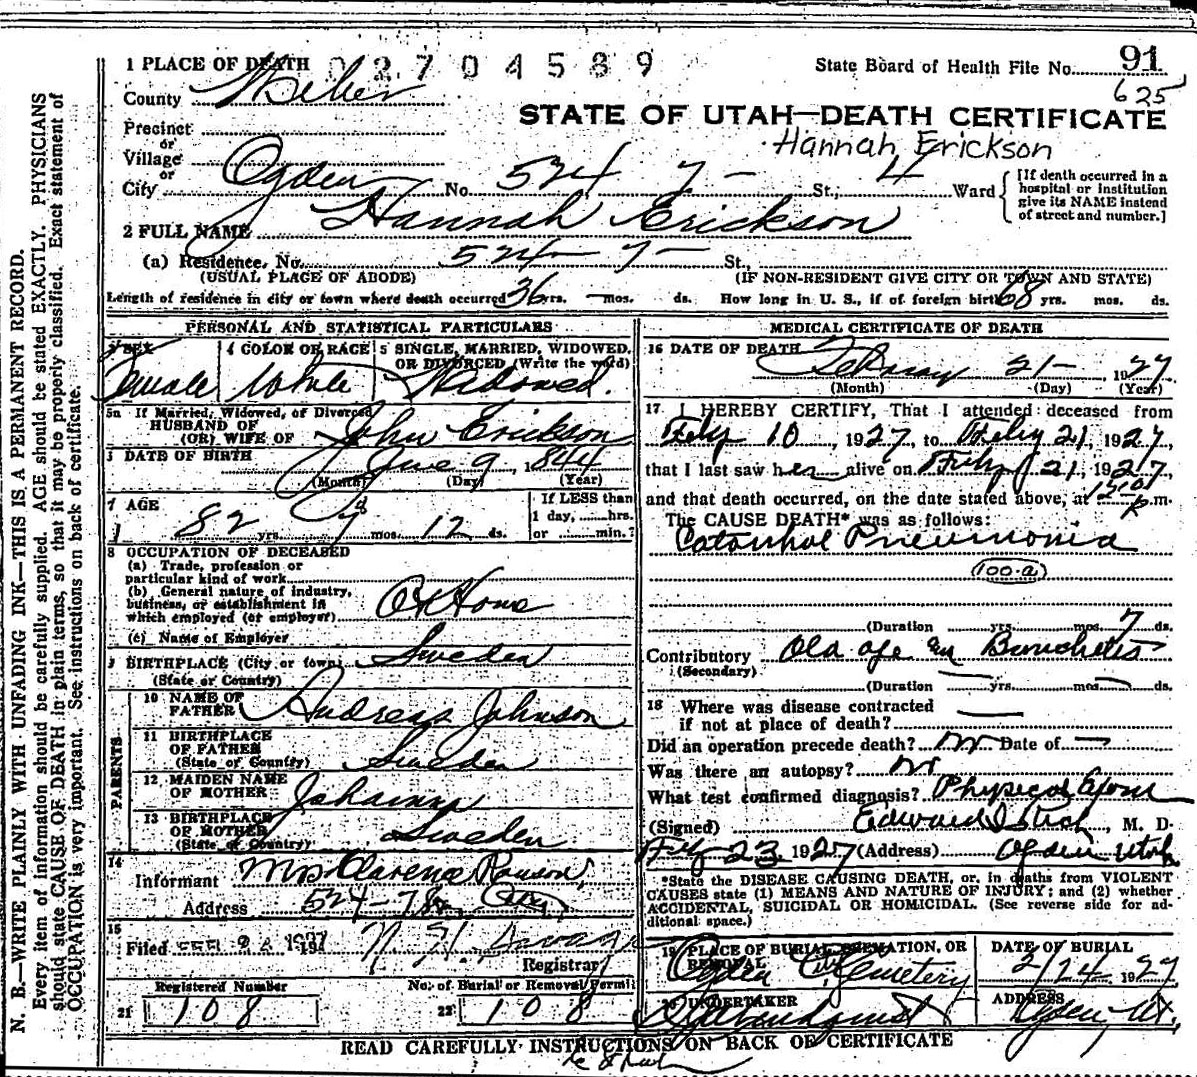 1 PLACE OF DEATH 02704589
State Board of Health File No. 91
625
County Weber
STATE OF UTAH—DEATH CERTIFICATE
Precinct
or
Village
or
Hannah Erickson
City Ogden No. 524 7 - St., 4 Ward
[If death occurred in a hospital or institution give its NAME instead of street and number.]
2 FULL NAME Hannah Erickson
(a) Residence, No. 524 - 7 - St.,
(USUAL PLACE OF ABODE) (IF NON-RESIDENT GIVE CITY OR TOWN AND STATE)
Length of residence in city or town where death occurred 36 yrs. — mos. ds. How long in U. S., if of foreign birth 68 yrs. mos. ds.
PERSONAL AND STATISTICAL PARTICULARS
3 SEX Female
4 COLOR OR RACE White
5 SINGLE, MARRIED, WIDOWED, OR DIVORCED (Write the word) Widowed.
5a If Married, Widowed, or Divorced
HUSBAND OF
(OR) WIFE OF John Erickson
DATE OF BIRTH June 9, 1844
(Month) (Day) (Year)
7 AGE 82 yrs. mos. 12 ds.
If LESS than
1 day, hrs.
or min.?
8 OCCUPATION OF DECEASED
(a) Trade, profession or
particular kind of work
(b) General nature of industry,
business, or establishment in
which employed (or employer) At Home
(c) Name of Employer
9 BIRTHPLACE (City or town) Sweden
(State or Country)
PARENTS
10 NAME OF
FATHER Andreas Johnson
11 BIRTHPLACE
OF FATHER
(State or Country) Sweden
12 MAIDEN NAME
OF MOTHER Johanna
13 BIRTHPLACE
OF MOTHER
(State or Country) Sweden
14
Informant Mrs Clarence
Address 524 - 7th City
15
Filed FEB 24 1927 N. H. Savage
Registrar
Registered Number
21 108
No. of Burial or Removal Permit
22 108
MEDICAL CERTIFICATE OF DEATH
16 DATE OF DEATH February 21 - , 1927
(Month) (Day) (Year)
17 I HEREBY CERTIFY, That I attended deceased from
Feby 10, 1927, to Feby 21, 1927,
that I last saw her alive on Feby 21, 1927,
and that death occurred, on the date stated above, at p.m.
The CAUSE DEATH* was as follows:
Catarrhal Pneumonia
100-a
(Duration yrs. mos. 7 ds.
Contributory Old age Bronchitis
(Secondary)
(Duration — yrs. mos. — ds.
18 Where was disease contracted
if not at place of death? —
Did an operation precede death? no Date of —
Was there an autopsy? no
What test confirmed diagnosis? Physical Exam
(Signed) Edward, M. D.
Feby 23 1927 (Address) Ogden Utah
*State the DISEASE CAUSING DEATH, or, in deaths from VIOLENT
CAUSES state (1) MEANS AND NATURE OF INJURY; and (2) whether
ACCIDENTAL, SUICIDAL OR HOMICIDAL. (See reverse side for ad-
ditional space.)
19 PLACE OF BURIAL, CREMATION, OR
REMOVAL
Ogden City Cemetery
DATE OF BURIAL
2/24 1927
20 UNDERTAKER
ADDRESS
Ogden, Ut.
READ CAREFULLY INSTRUCTIONS ON BACK OF CERTIFICATE
N. B.—WRITE PLAINLY WITH UNFADING INK—THIS IS A PERMANENT RECORD.
Every item of information should be carefully supplied. AGE should be stated EXACTLY. PHYSICIANS
should state CAUSE OF DEATH in plain terms, so that it may be properly classified. Exact statement of
OCCUPATION is very important. See instructions on back of certificate.